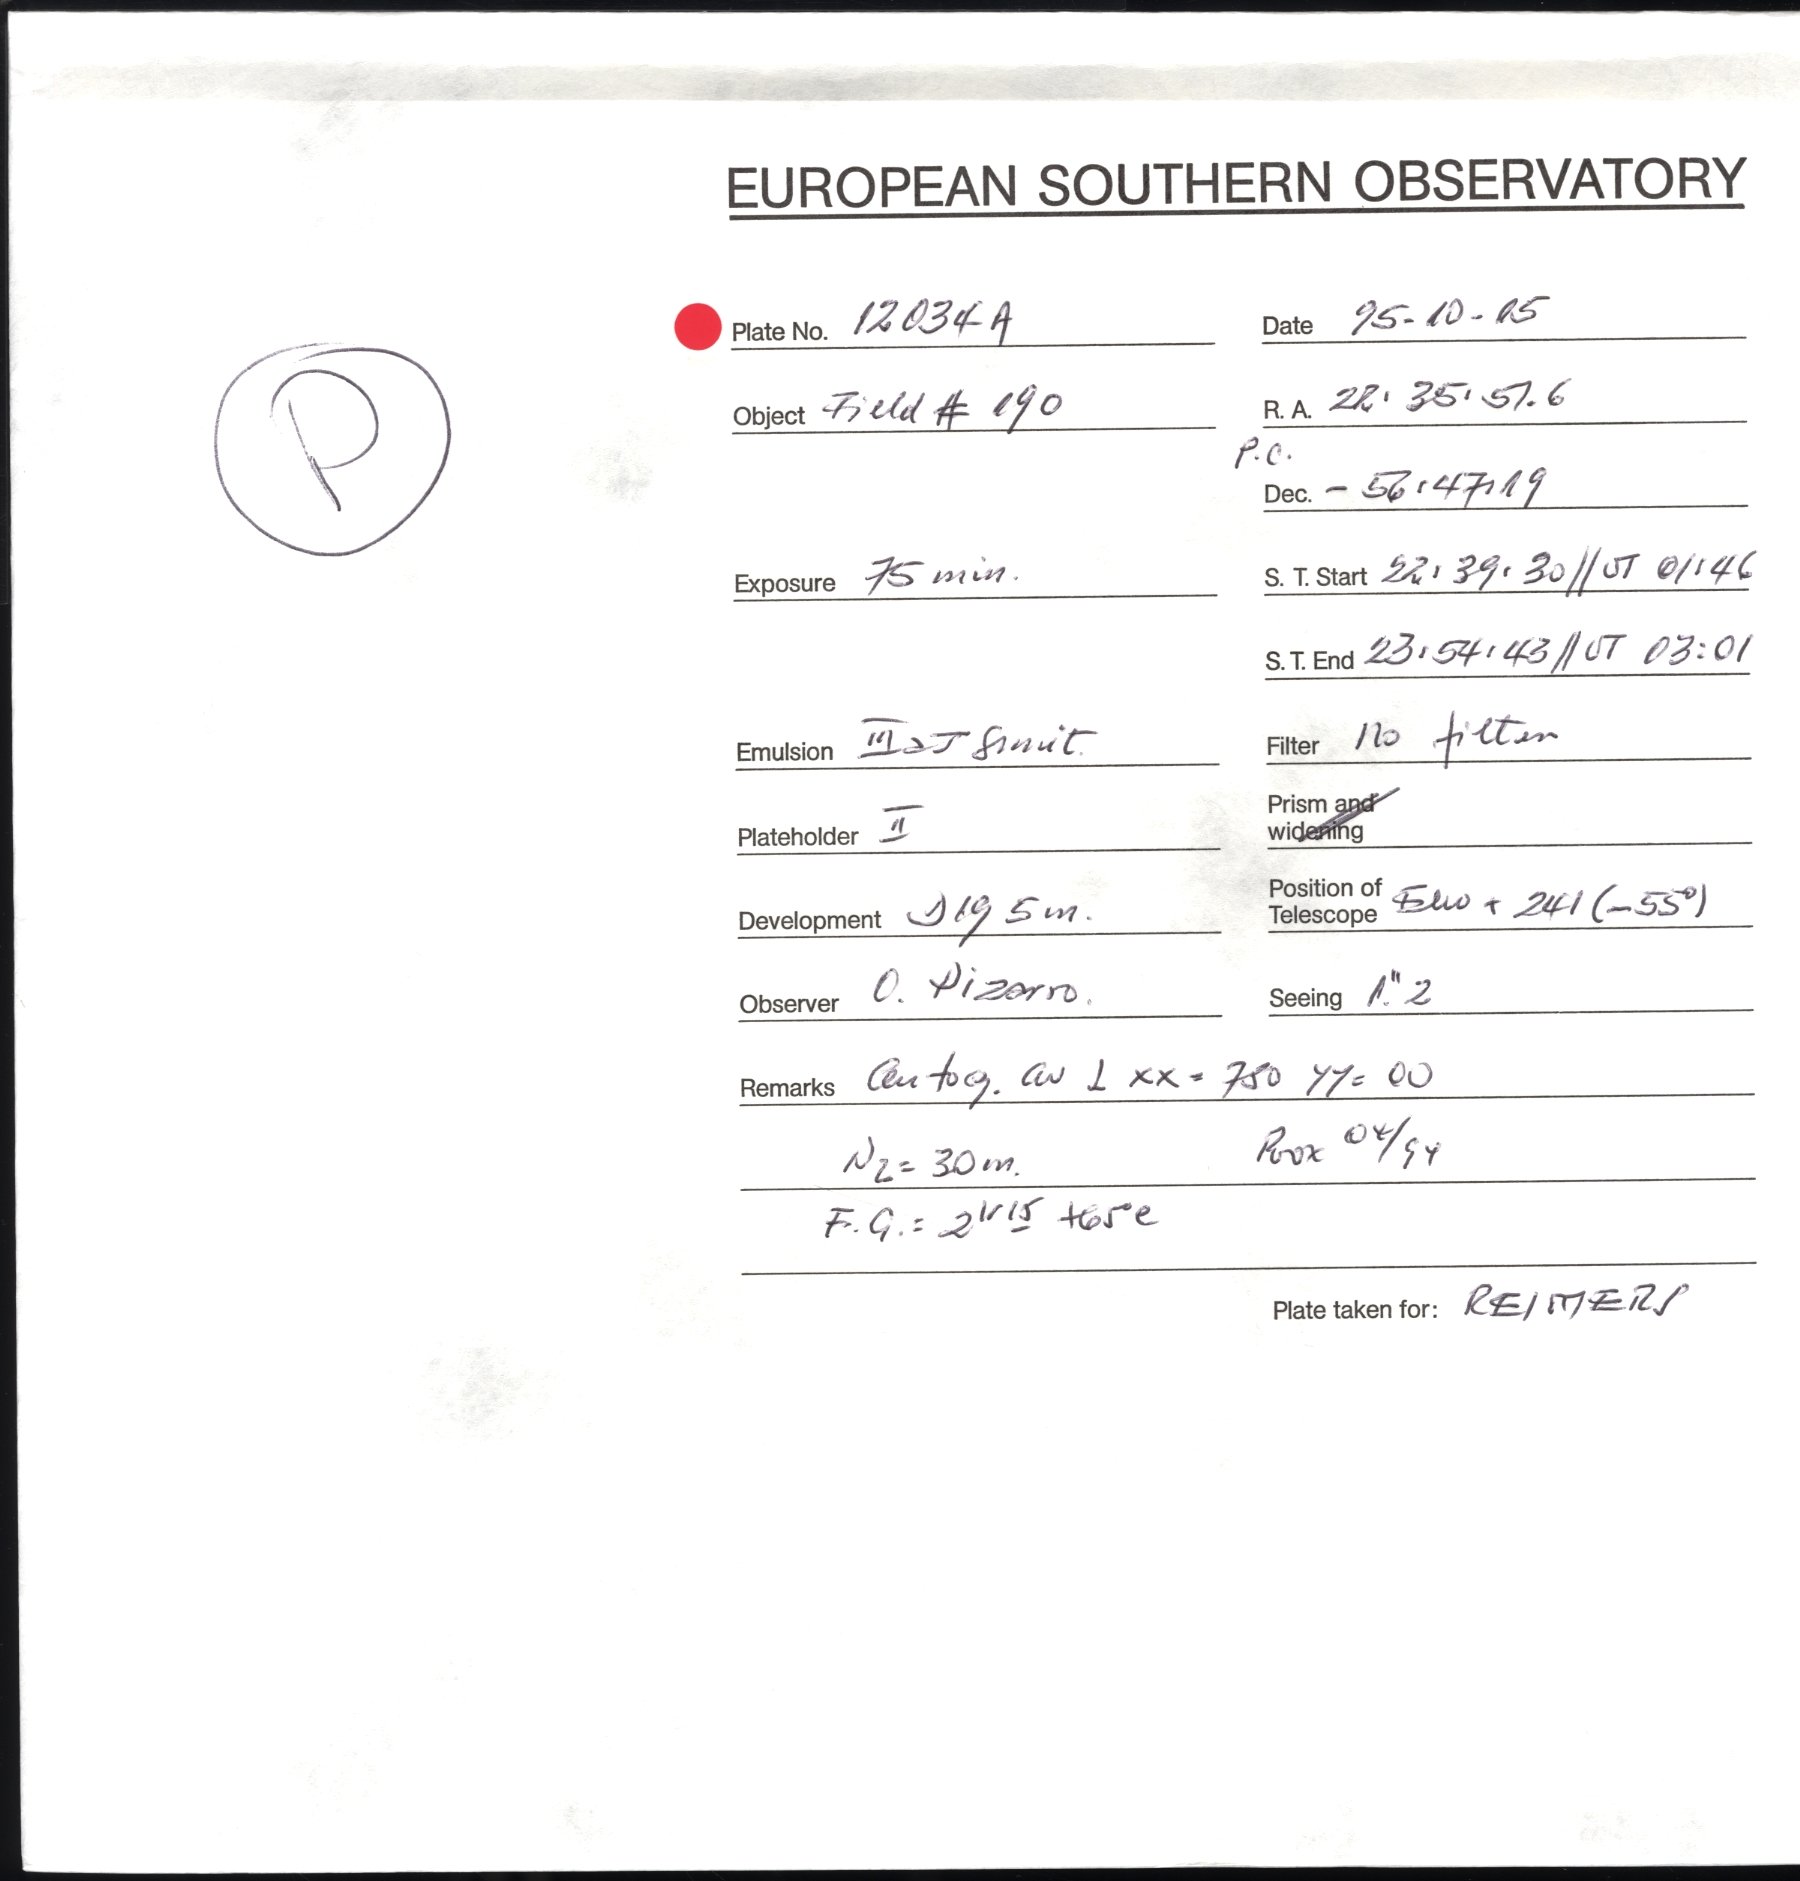 EUROPEAN SOUTHERN OBSERVATORY
P
Plate No. 12034A
Date 95-10-15
Object Field # 190
R. A. 22: 35: 51.6
P.C.
Dec. - 56:47:19
Exposure 75 min.
S. T. Start 22: 39: 30 // UT 01:46
S. T. End 23:54:43 // UT 03:01
Emulsion III aJ
Filter no filter
Plateholder II
Prism and widening
Development D19 5m.
Position of Telescope + 241 (-55°)
Observer O. Pizarro.
Seeing 1."2
Remarks Autog. xx = 750 yy = 00
N2 = 30m. 04/94
F.G.: +65°
Plate taken for: REIMERS